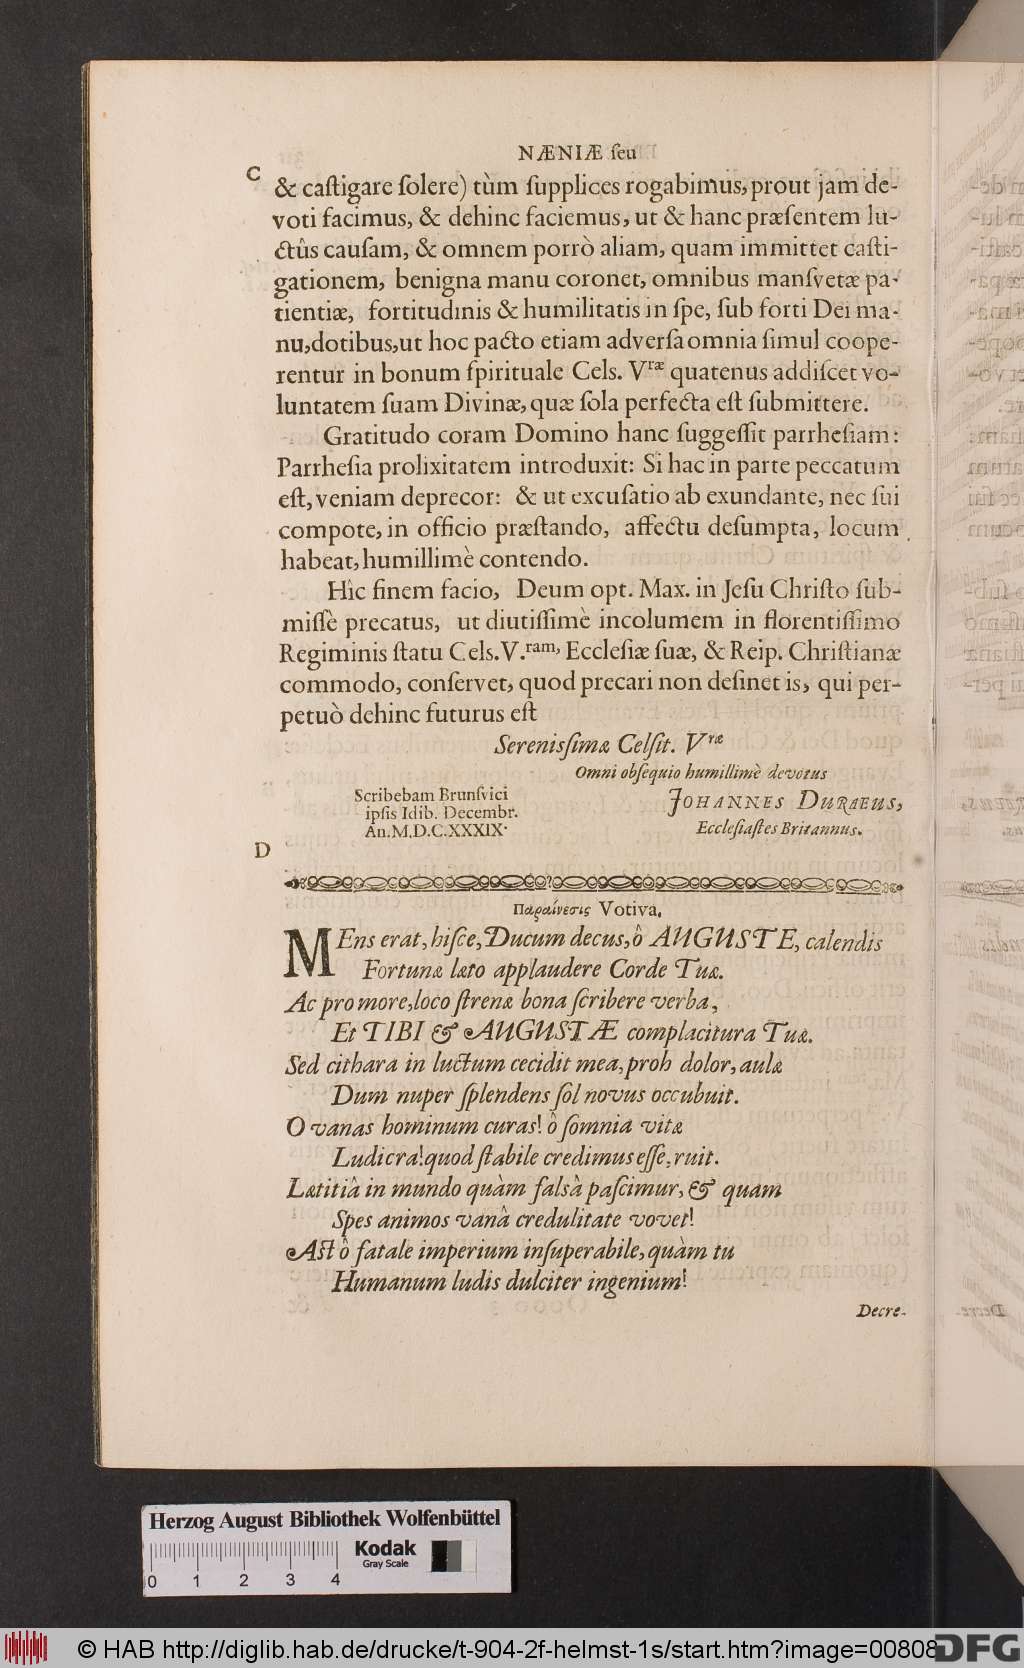 NÆNIÆ ſeu
C
& caſtigare ſolere) tùm ſupplices rogabimus, prout jam de-
voti facimus, & dehinc faciemus, ut & hanc præſentem lu-
ctûs cauſam, & omnem porrò aliam, quam immittet caſti-
gationem, benigna manu coronet, omnibus manſvetæ pa-
tientiæ, fortitudinis & humilitatis in ſpe, ſub forti Dei ma-
nu, dotibus, ut hoc pacto etiam adverſa omnia ſimul coope-
rentur in bonum ſpirituale Cels. Vræ quatenus addiſcet vo-
luntatem ſuam Divinæ, quæ ſola perfecta eſt ſubmittere.
Gratitudo coram Domino hanc ſuggeſſit parrheſiam:
Parrheſia prolixitatem introduxit: Si hac in parte peccatum
eſt, veniam deprecor: & ut excuſatio ab exundante, nec ſui
compote, in officio præſtando, affectu deſumpta, locum
habeat, humillimè contendo.
Hîc finem facio, Deum opt. Max. in Jeſu Chriſto ſub-
miſſè precatus, ut diutiſſimè incolumem in florentiſſimo
Regiminis ſtatu Cels. V.ram, Eccleſiæ ſuæ, & Reip. Chriſtianæ
commodo, conſervet, quod precari non deſinet is, qui per-
petuò dehinc futurus eſt
Serenisſimæ Celſit. Vræ
Omni obſequio humillimè devotus
Scribebam Brunſvici
ipſis Idib. Decembr.
An. M.D.C.XXXIX.
JOHANNES DURAEUS,
Eccleſiaſtes Britannus.
D
Παραίνεσις Votiva.
MEns erat, hiſce, Ducum decus, ô AUGUSTE, calendis
Fortunæ læto applaudere Corde Tuæ.
Ac pro more, loco ſtrenæ bona ſcribere verba,
Et TIBI & AUGUSTÆ complacitura Tuæ.
Sed cithara in luctum cecidit mea, proh dolor, aulæ
Dum nuper ſplendens ſol novus occubuit.
O vanas hominum curas! ô ſomnia vitæ
Ludicra! quod ſtabile credimus eſſe, ruit.
Lætitiâ in mundo quàm falsâ paſcimur, & quam
Spes animos vanâ credulitate vovet!
Aſt ô fatale imperium inſuperabile, quàm tu
Humanum ludis dulciter ingenium!
Decre-
Herzog August Bibliothek Wolfenbüttel
Kodak
Gray Scale
0 1 2 3 4
© HAB http://diglib.hab.de/drucke/t-904-2f-helmst-1s/start.htm?image=00808
DFG